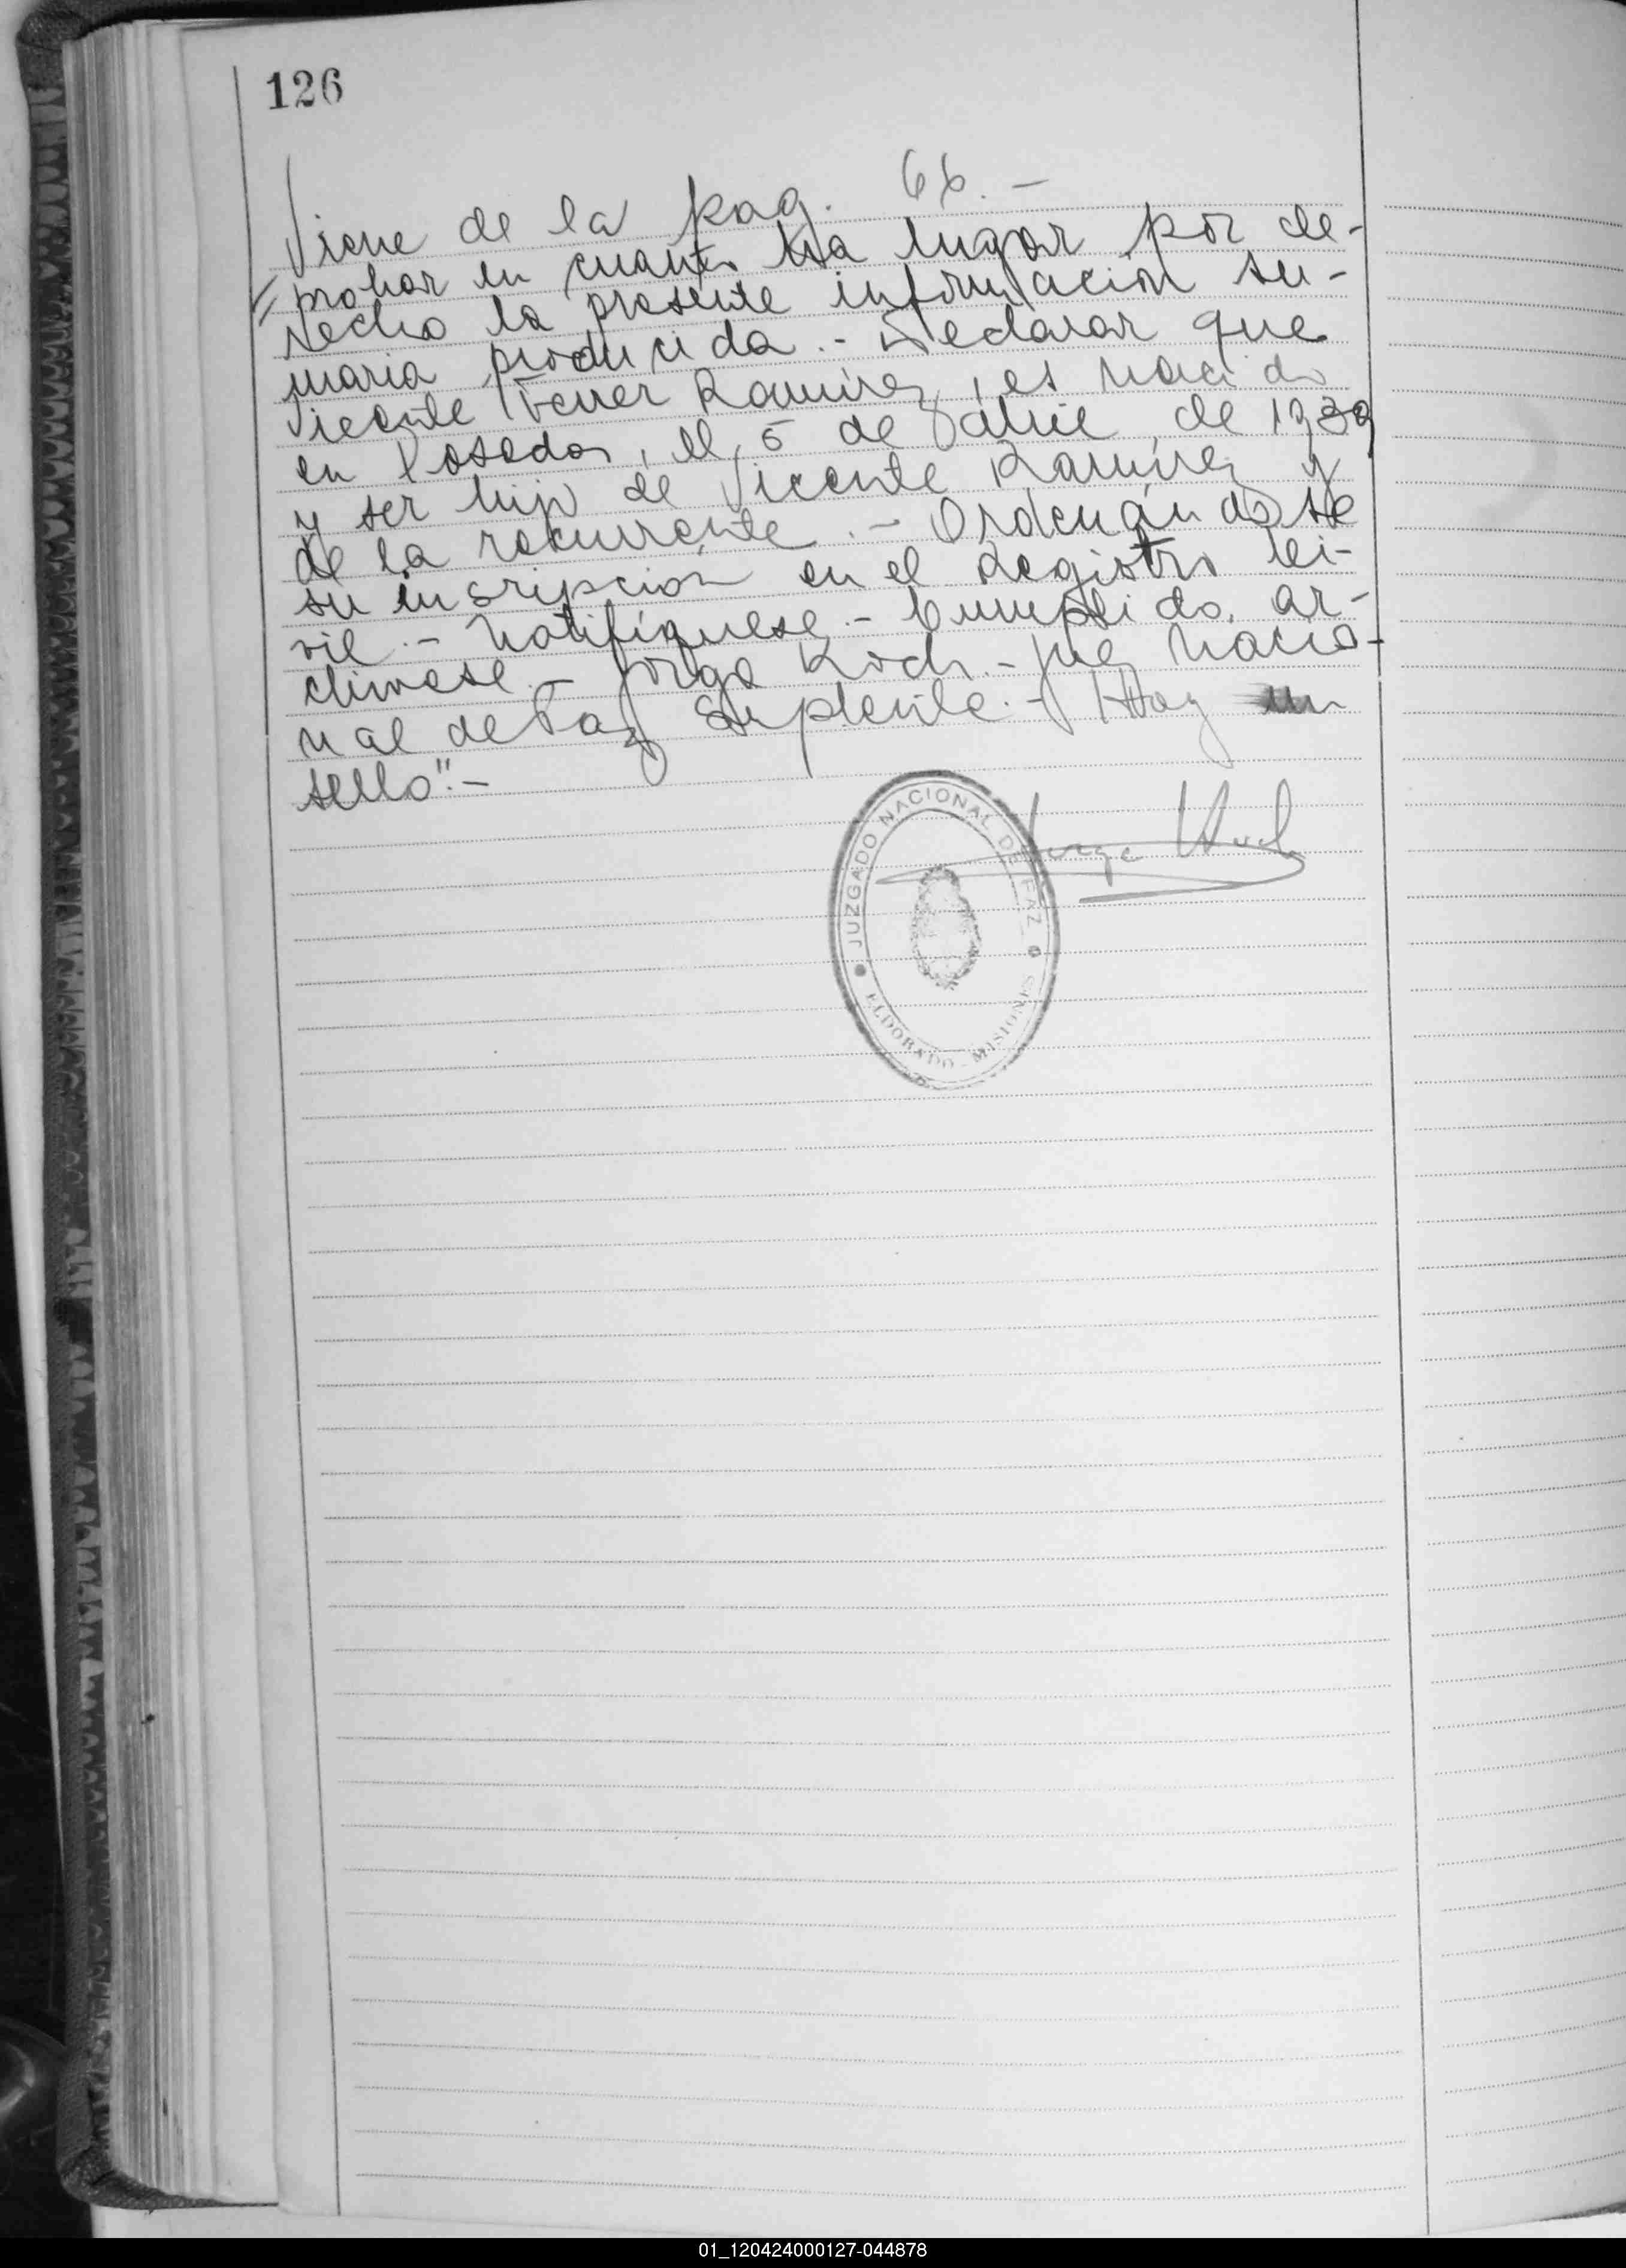 126
Viene de la pag. 66.-
// probar en cuanto ha lugar por de-
recho la presente información su-
maria producida.- Declarar que
Vicente Ferrer Ramirez, es nacido
en Posadas, el 5 de de 1939
y ser hijo de Vicente Ramirez y
de la recurrente.- Ordenándose
su inscripción en el Registro Ci-
vil.- Notifíquese.- Cumplido, ar-
chívese.- Jorge Koch.- Juez Nacio-
nal de Paz Suplente.- Hay un
sello".-
Jorge Koch
JUZGADO NACIONAL DE PAZ
ELDORADO - MISIONES
01_120424000127-044878